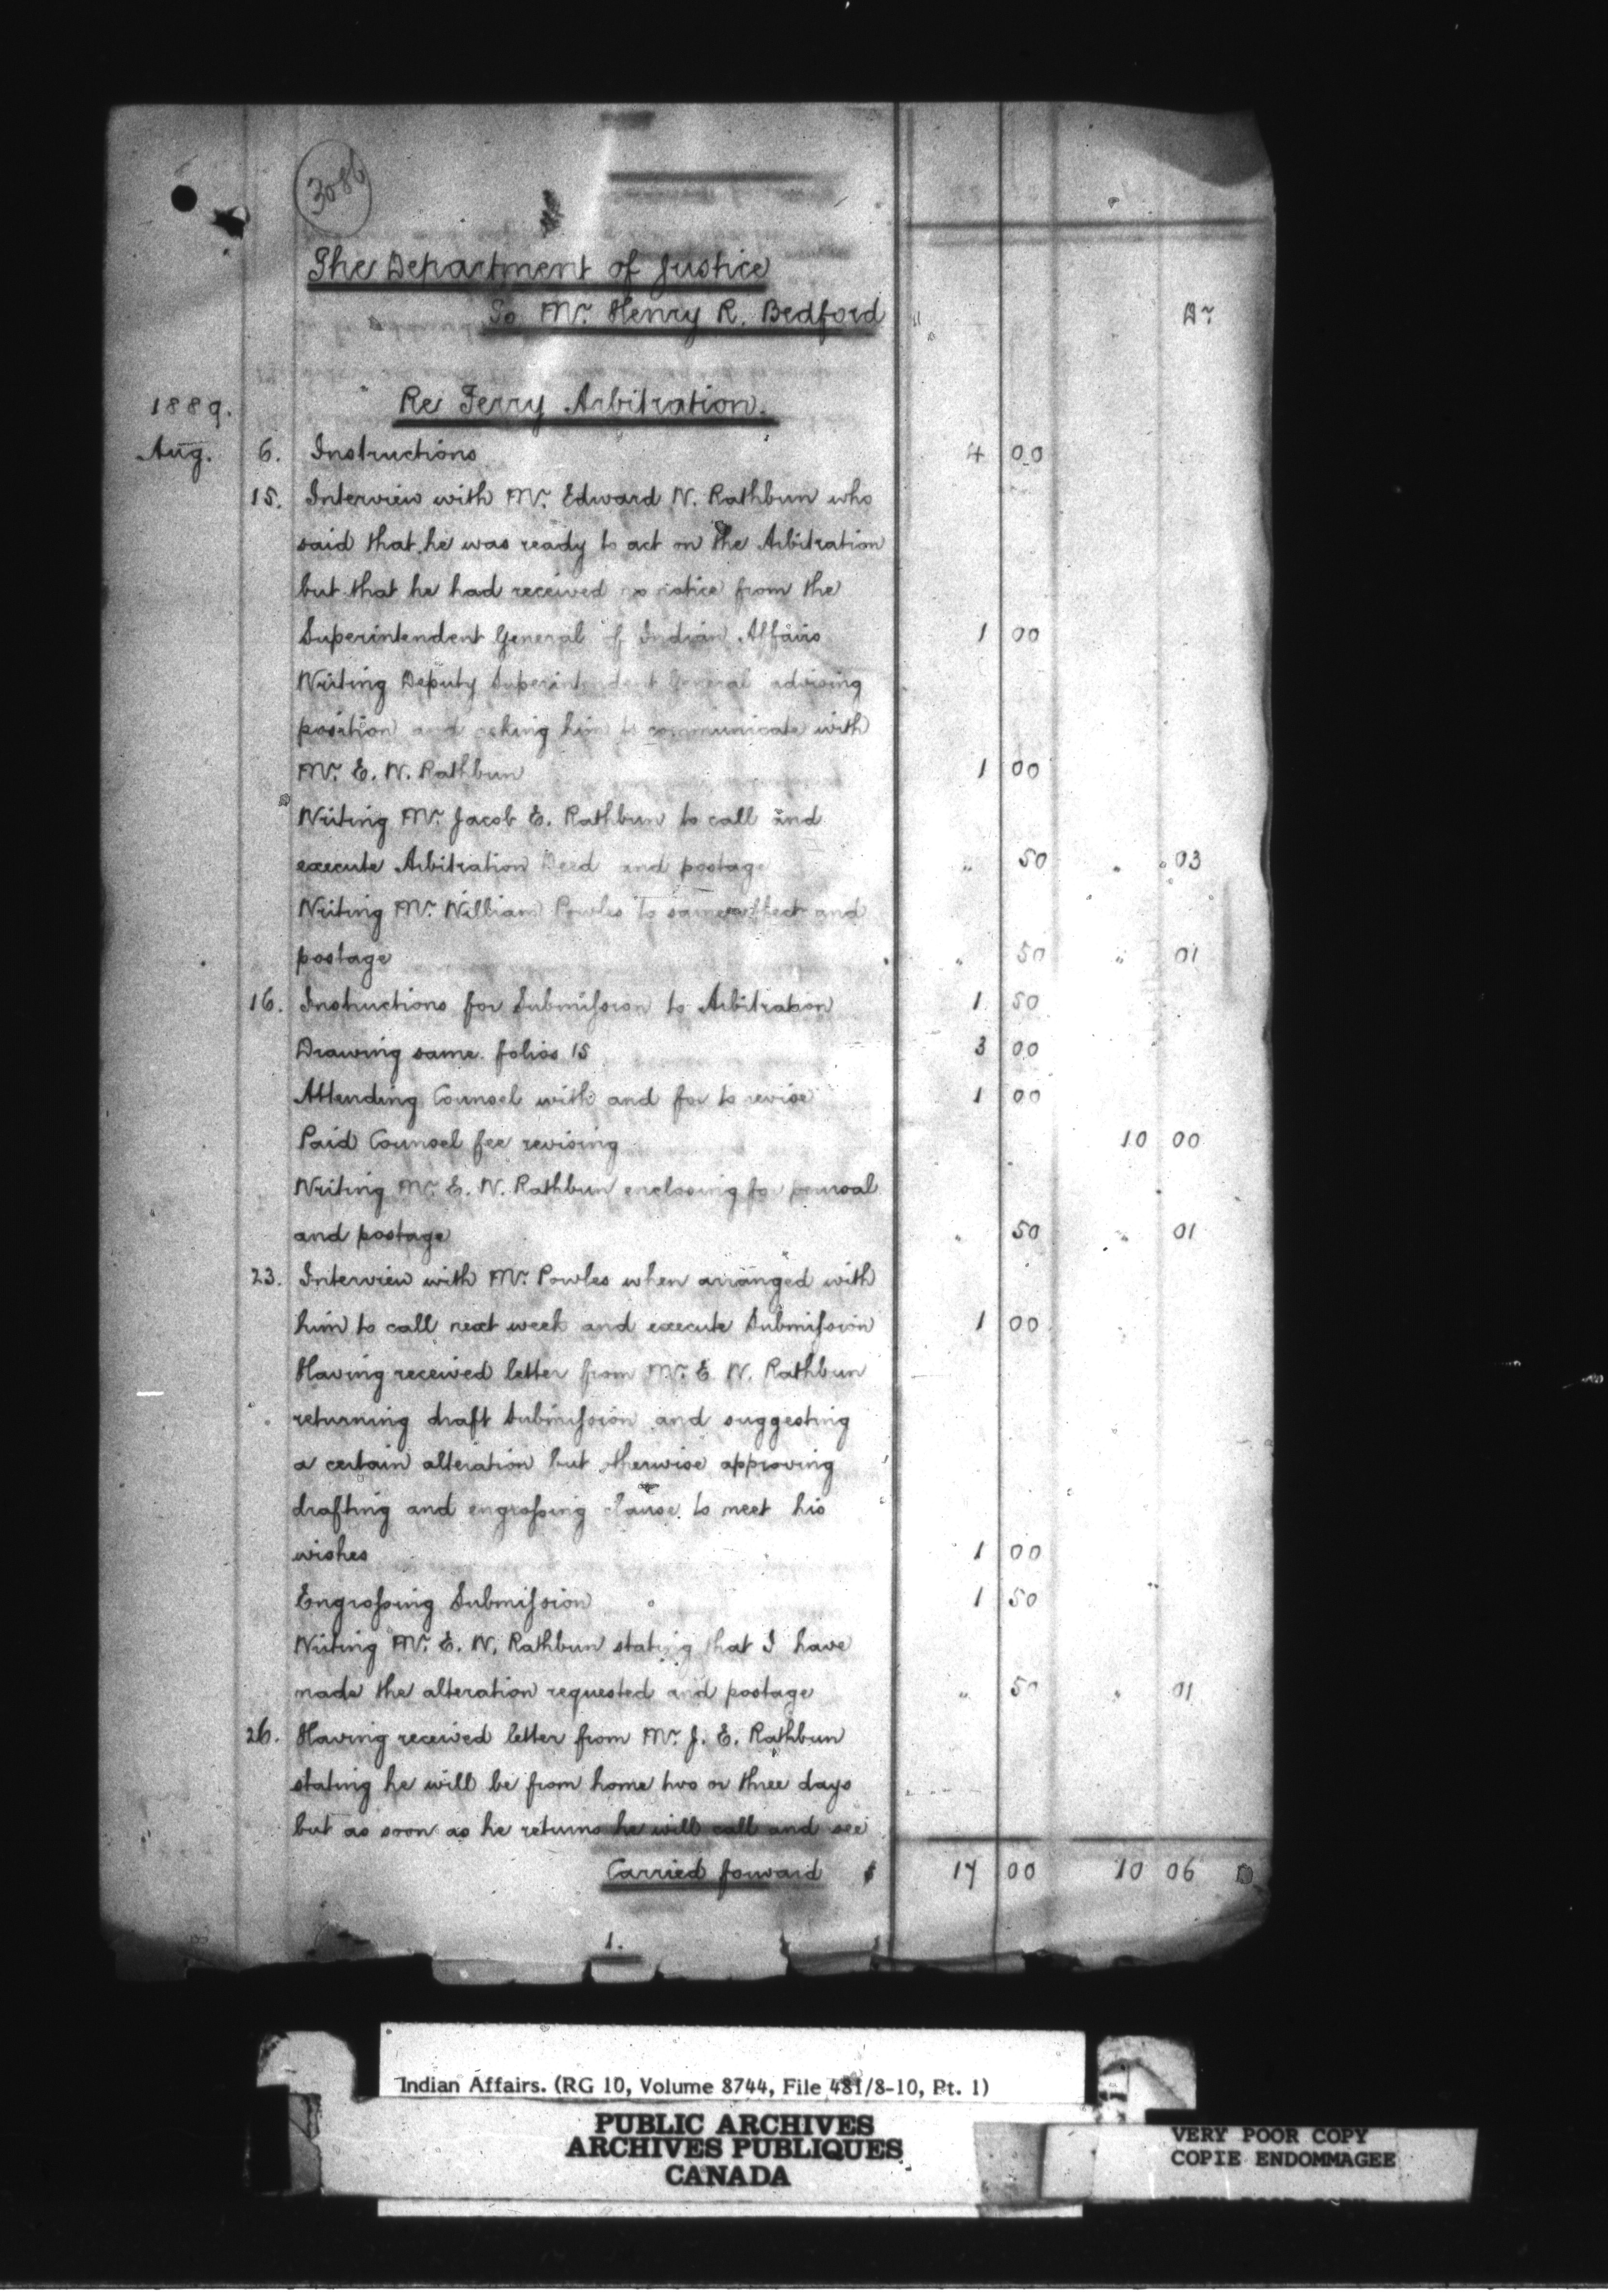 3086
The Department of Justice
To Mr. Henry R. Bedford Dr
1889. Re Ferry Arbitration.
Aug. 6. Instructions 4 00
15. Interview with Mr. Edward N. Rathbun who
said that he was ready to act on the Arbitration
but that he had received no notice from the
Superintendent General of Indian Affairs 1 00
Writing Deputy Superintendent General advising
position and asking him to communicate with
Mr. E. N. Rathbun 1 00
Writing Mr. Jacob E. Rathbun to call and
execute Arbitration Deed and postage " 50 " 03
Writing Mr. William Powles to same effect and
postage " 50 " 01
16. Instructions for Submission to Arbitration 1 50
Drawing same folios 15 3 00
Attending Counsel with and for to revise 1 00
Paid Counsel fee revising 10 00
Writing Mr. E. N. Rathbun enclosing for perusal
and postage " 50 " 01
23. Interview with Mr. Powles when arranged with
him to call next week and execute Submission 1 00
Having received letter from Mr. E. N. Rathbun
returning draft Submission and suggesting
a certain alteration but otherwise approving
drafting and engrossing clause to meet his
wishes 1 00
Engrossing Submission 1 50
Writing Mr. E. N. Rathbun stating that I have
made the alteration requested and postage " 50 " 01
26. Having received letter from Mr. J. E. Rathbun
stating he will be from home two or three days
but as soon as he returns he will call and see
Carried forward $ 17 00 10 06
1.
Indian Affairs. (RG 10, Volume 8744, File 481/8-10, Pt. 1)
PUBLIC ARCHIVES
ARCHIVES PUBLIQUES
CANADA
VERY POOR COPY
COPIE ENDOMMAGEE